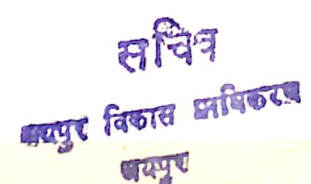 सचिव
जयपुर विकास प्राधिकरण
जयपुर